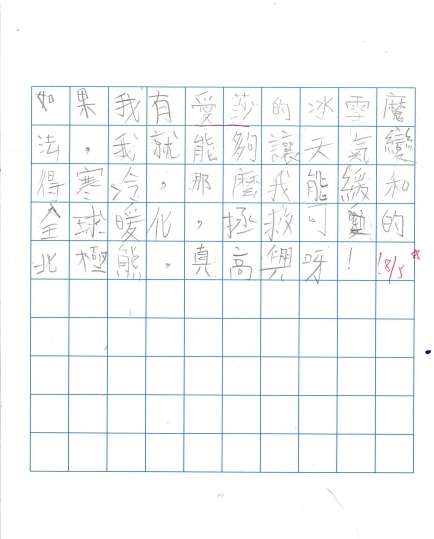 如果我有愛莎的冰雪魔
法，我就能夠讓天氣變
得寒冷，那麼我能緩和
全球暖化，拯救可的
北極熊，真高興呀！ 18/5